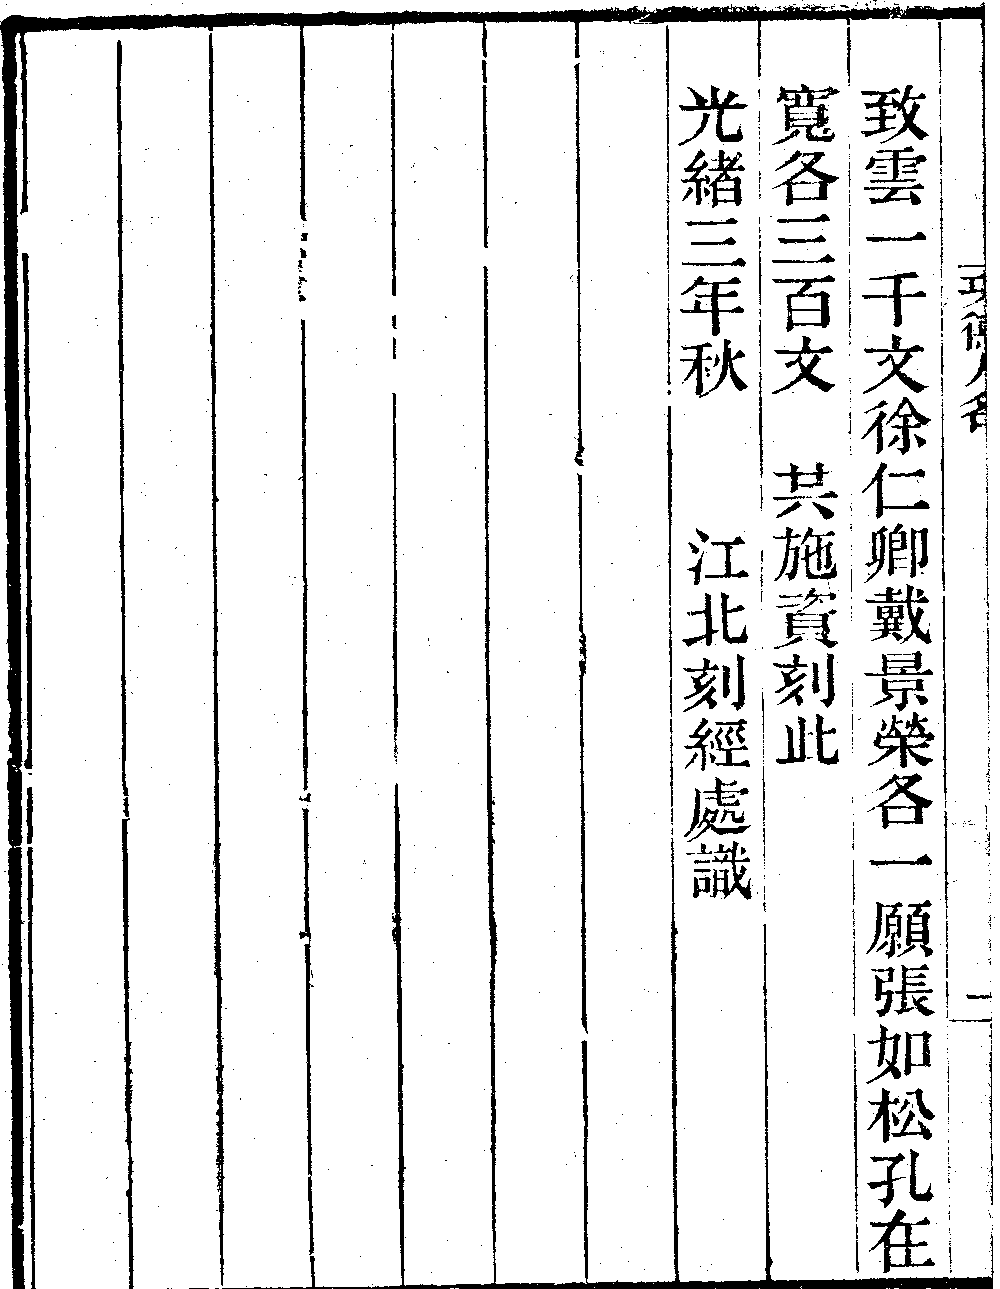 功德人名 一
致雲一千文徐仁卿戴景榮各一願張如松孔在
寬各三百文　共施資刻此
光緒三年秋　　江北刻經處識